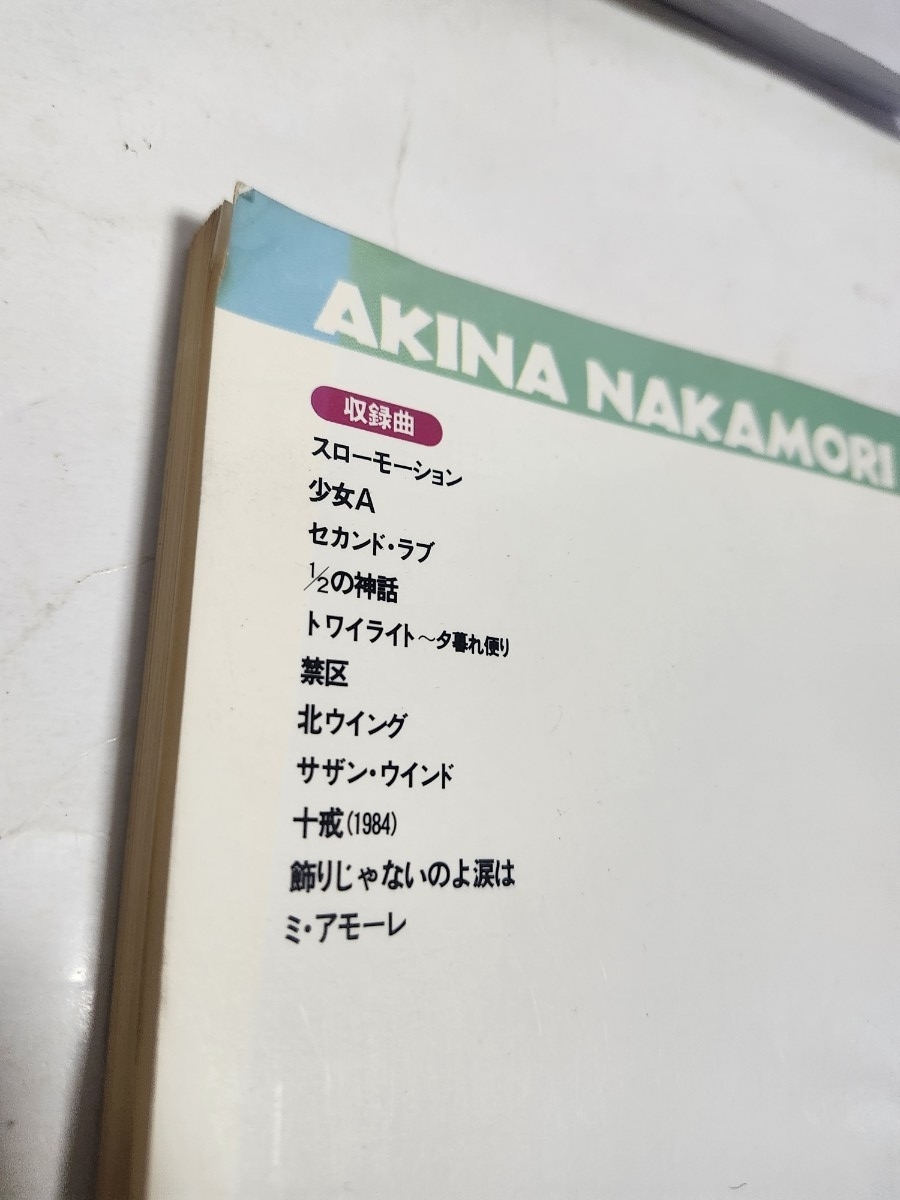 AKINA NAKAMORI
収録曲
スローモーション
少女A
セカンド・ラブ
1/2の神話
トワイライト~夕暮れ便り
禁区
北ウイング
サザン・ウインド
十戒(1984)
飾りじゃないのよ涙は
ミ・アモーレ